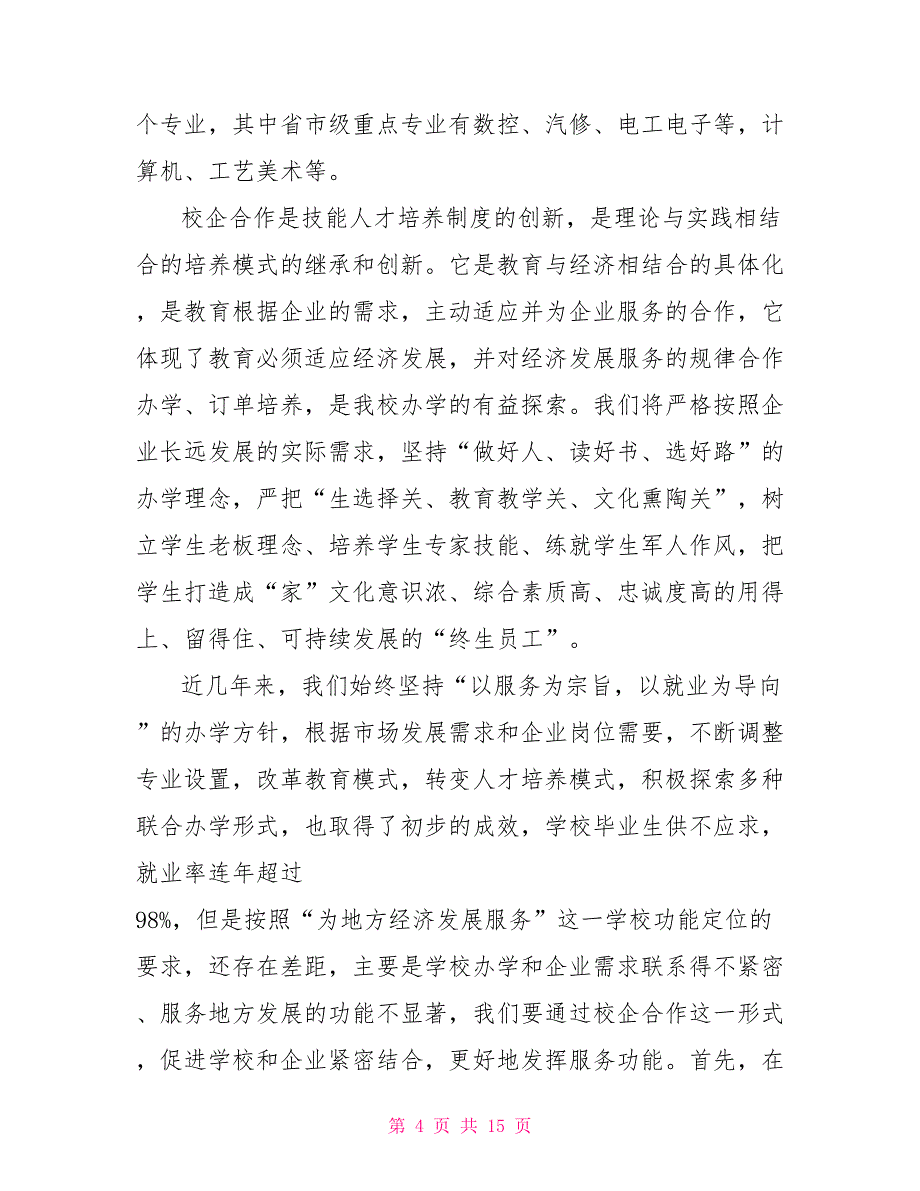 个专业，其中省市级重点专业有数控、汽修、电工电子等，计
算机、工艺美术等。
校企合作是技能人才培养制度的创新，是理论与实践相结
合的培养模式的继承和创新。它是教育与经济相结合的具体化
，是教育根据企业的需求，主动适应并为企业服务的合作，它
体现了教育必须适应经济发展，并对经济发展服务的规律合作
办学、订单培养，是我校办学的有益探索。我们将严格按照企
业长远发展的实际需求，坚持“做好人、读好书、选好路”的
办学理念，严把“生选择关、教育教学关、文化熏陶关”，树
立学生老板理念、培养学生专家技能、练就学生军人作风，把
学生打造成“家”文化意识浓、综合素质高、忠诚度高的用得
上、留得住、可持续发展的“终生员工”。
近几年来，我们始终坚持“以服务为宗旨，以就业为导向
”的办学方针，根据市场发展需求和企业岗位需要，不断调整
专业设置，改革教育模式，转变人才培养模式，积极探索多种
联合办学形式，也取得了初步的成效，学校毕业生供不应求，
就业率连年超过
98%，但是按照“为地方经济发展服务”这一学校功能定位的
要求，还存在差距，主要是学校办学和企业需求联系得不紧密
、服务地方发展的功能不显著，我们要通过校企合作这一形式
，促进学校和企业紧密结合，更好地发挥服务功能。首先，在
第 4 页 共 15 页